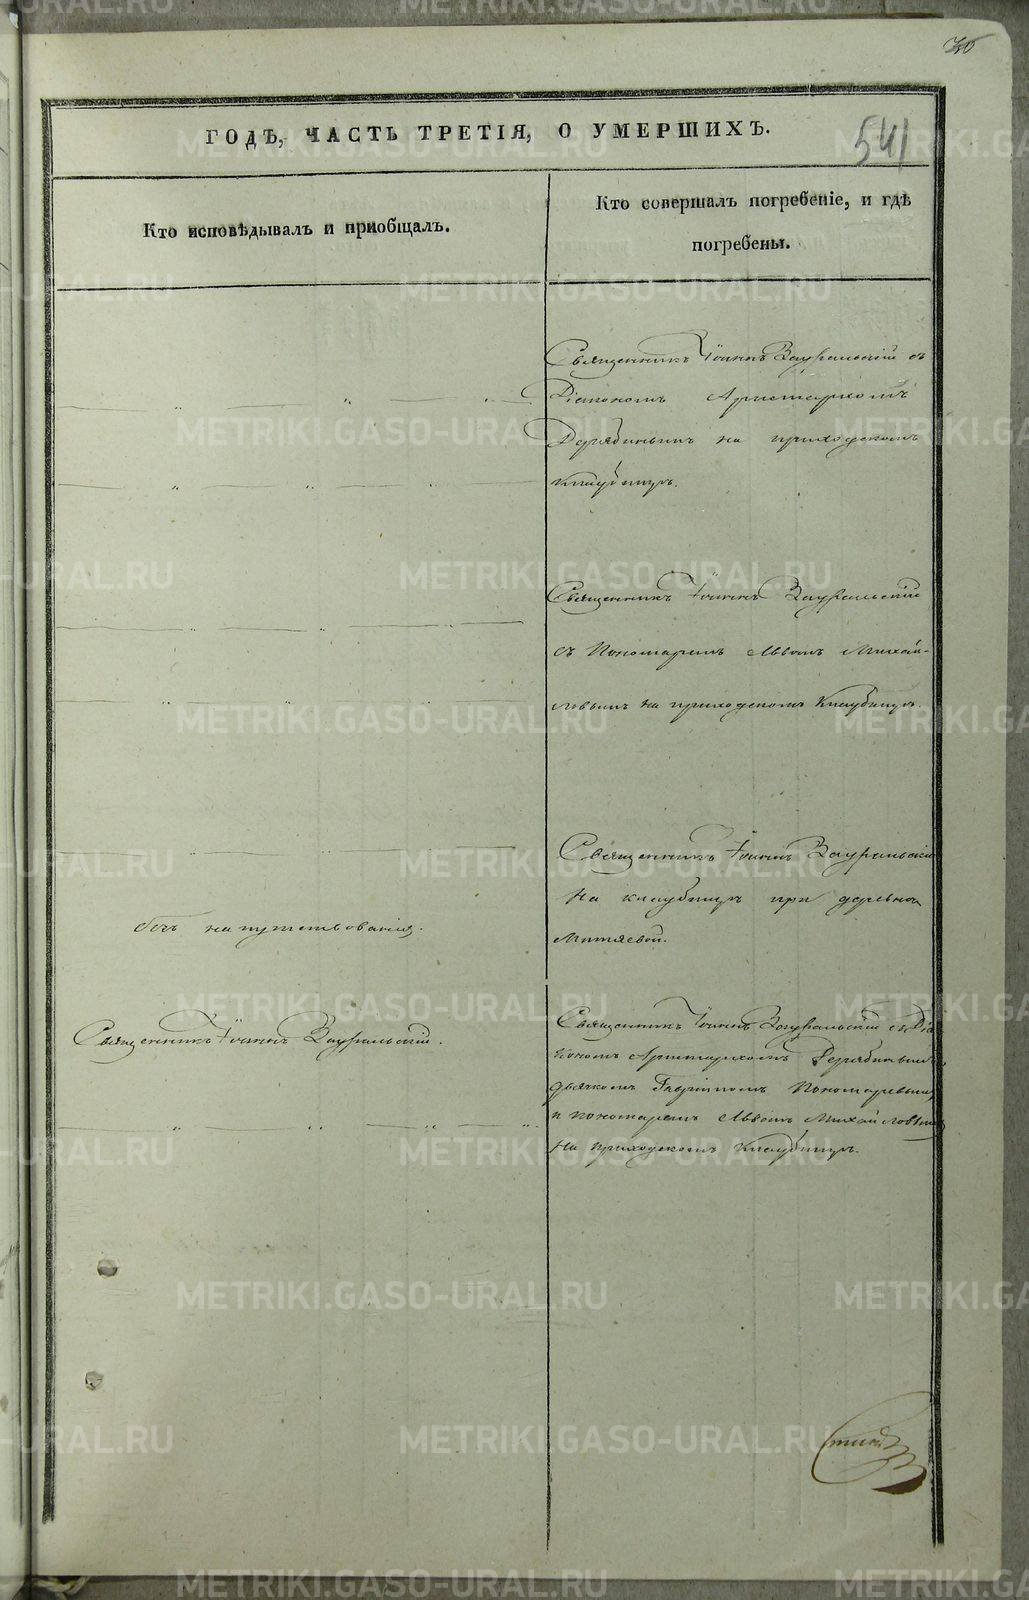 ГОДѢ, ЧАСТЬ ТРЕТІЯ, О УМЕРШИХЪ.
541
Кто исповѣдывалъ и пріобщалъ.
Кто совершалъ погребеніе, и гдѣ
погребены.
Священникъ Іоаннъ Зауральскій съ
Діакономъ Аристархомъ
Дерябинымъ на приходскомъ
кладбищѣ.
Священникъ Іоаннъ Зауральскій
съ Пономаремъ Львомъ Михай-
ловымъ на приходскомъ кладбищѣ.
Священникъ Іоаннъ Зауральскій
на кладбищѣ при деревнѣ
безъ напутствованія.
Митяевой.
Священникъ Іоаннъ Зауральскій.
Священникъ Іоаннъ Зауральскій съ Діа
кономъ Аристархомъ Дерябинымъ,
дьячкомъ Пономаревымъ
и пономаремъ Львомъ Михайловымъ
на приходскомъ кладбищѣ.
METRIKI.GASO-URAL.RU